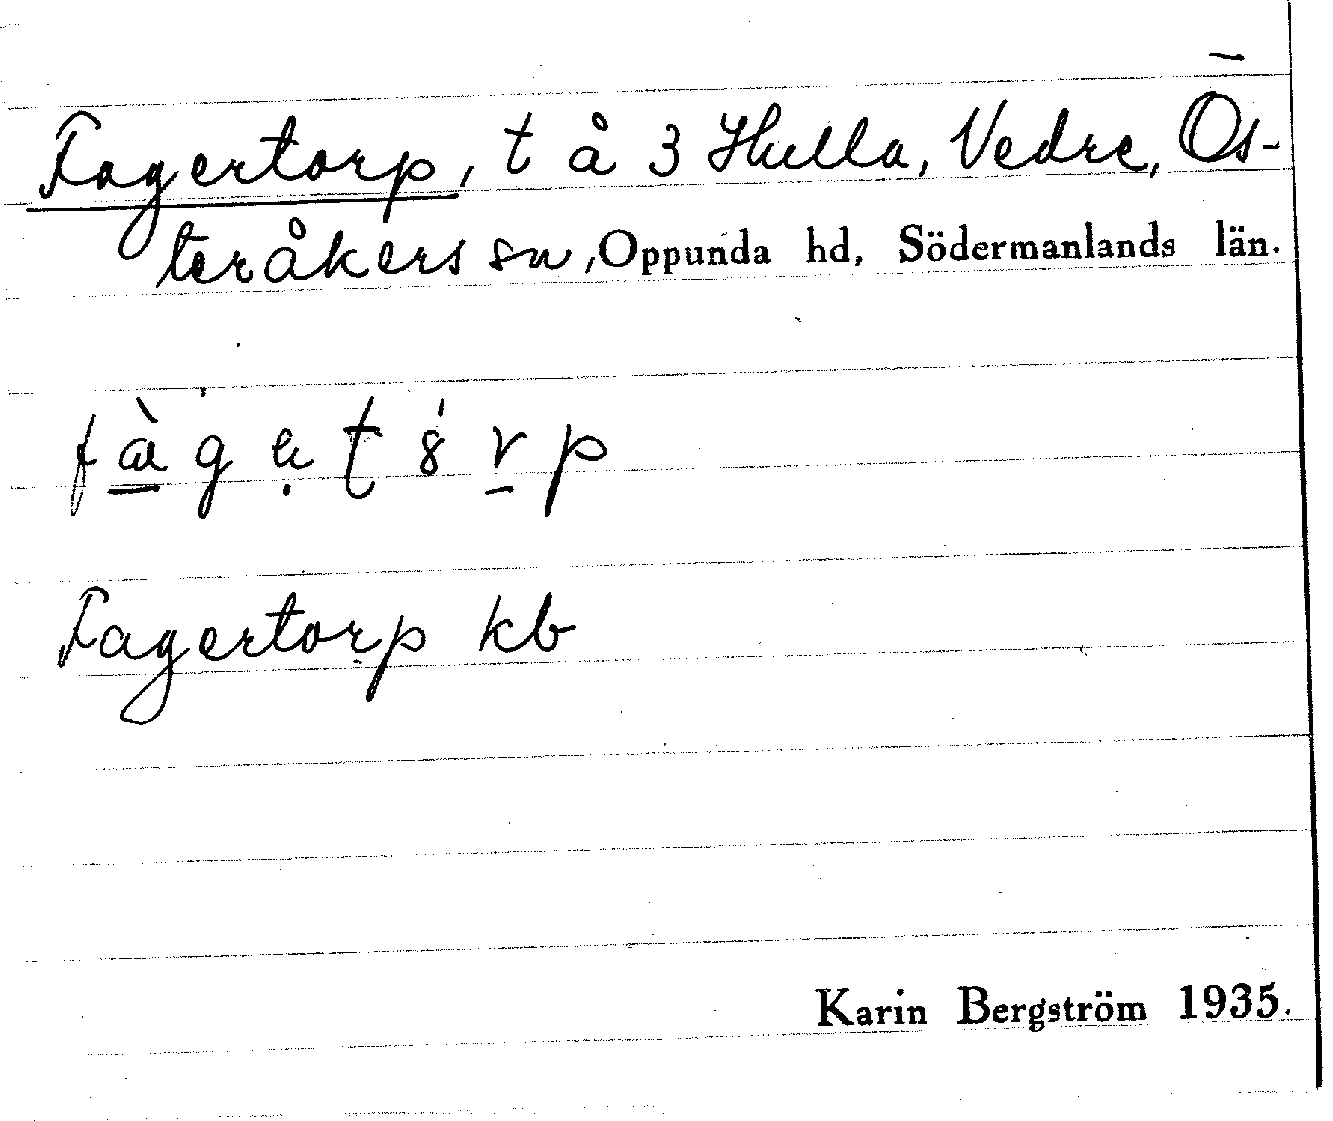 Fagertorp, t å 3 Hulla, Vedre, Ös-
teråkers sn, Oppunda hd, Södermanlands län.
Fagertorp kb
Karin Bergström 1935.